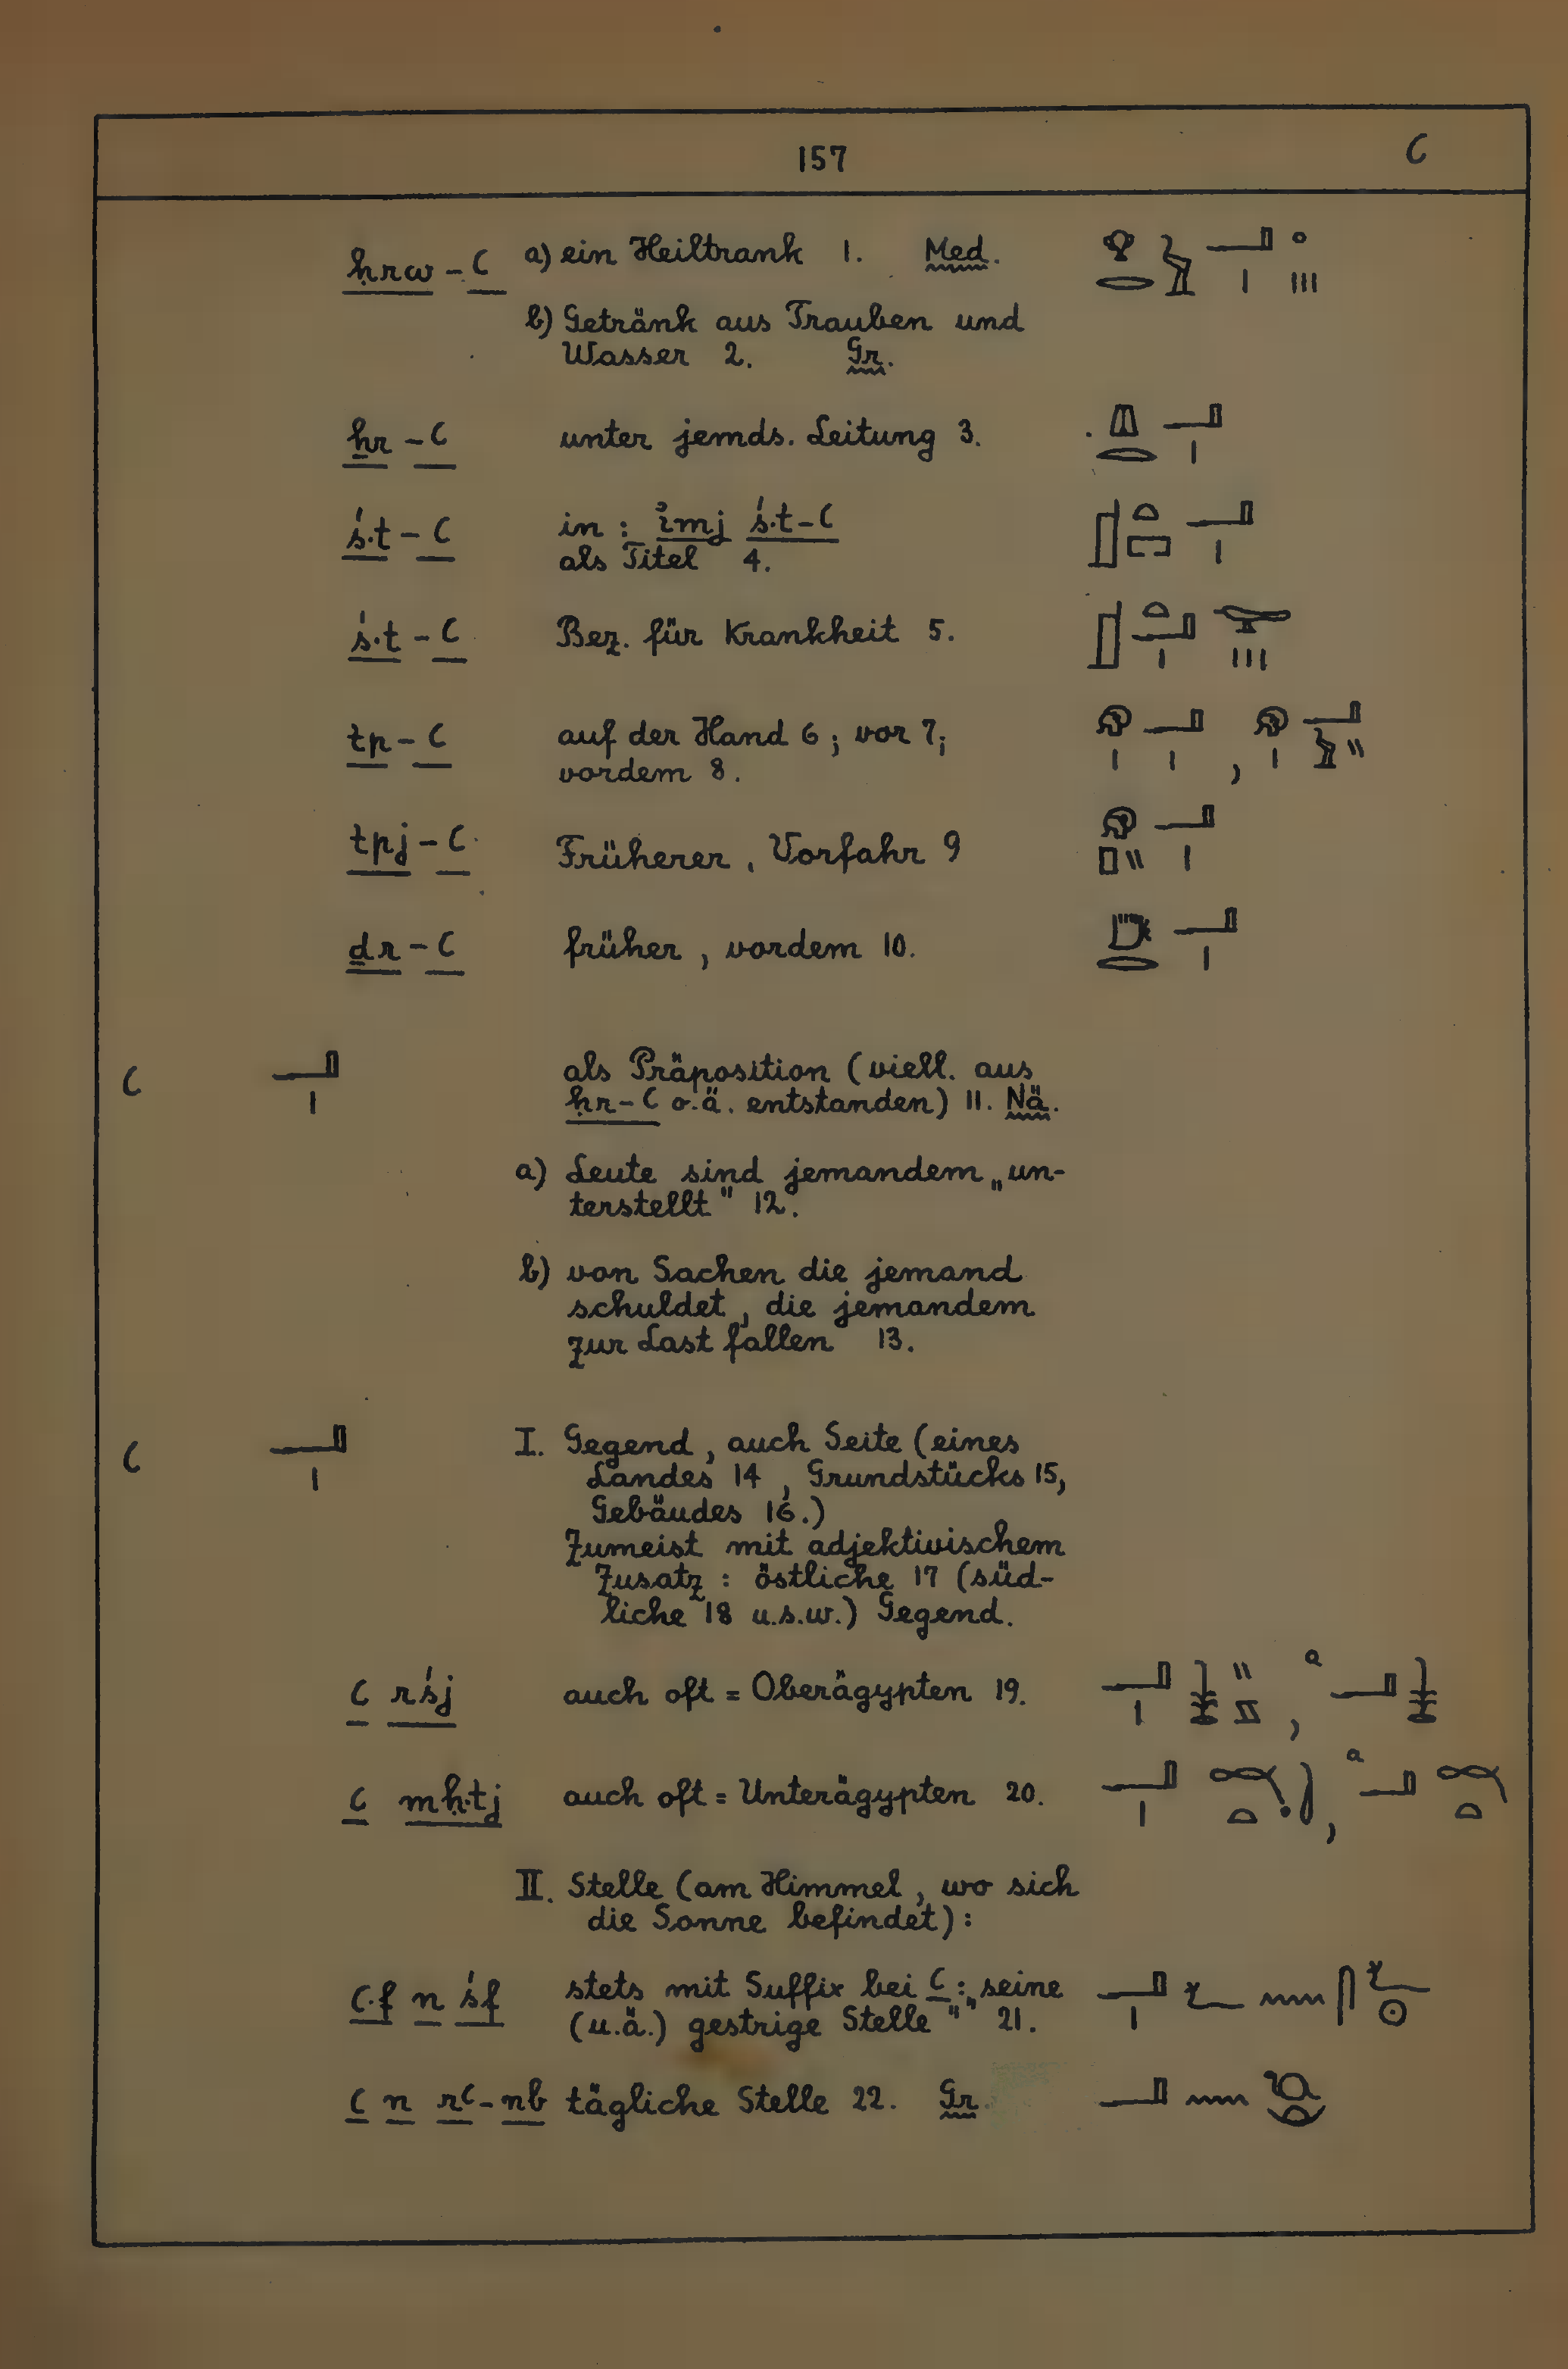 157 ꜥ
ḥrw-ꜥ a) ein Heiltrank 1. Med.
b) Getränk aus Trauben und
Wasser 2. Gr.
ẖr-ꜥ unter jemds. Leitung 3.
ś.t-ꜥ in: imj ś.t-ꜥ
als Titel 4.
ś.t-ꜥ Bez. für Krankheit 5.
tp-ꜥ auf der Hand 6; vor 7;
vordem 8.
tpj-ꜥ Früherer, Vorfahr 9
ḏr-ꜥ früher, vordem 10.
ꜥ als Präposition (viell. aus
ḥr-ꜥ o.ä. entstanden) 11. Nä.
a) Leute sind jemandem „un-
terstellt" 12.
b) von Sachen die jemand
schuldet, die jemandem
zur Last fallen 13.
ꜥ I. Gegend, auch Seite (eines
Landes 14, Grundstücks 15,
Gebäudes 16.)
Zumeist mit adjektivischem
Zusatz: östliche 17 (süd-
liche 18 u.s.w.) Gegend.
ꜥ rśj auch oft = Oberägypten 19. , a
ꜥ mḥ.tj auch oft = Unterägypten 20. , a
II. Stelle (am Himmel, wo sich
die Sonne befindet):
ꜥ.f n śf stets mit Suffix bei ꜥ: „seine
(u.ä.) gestrige Stelle" 21.
ꜥ n rꜥ-nb tägliche Stelle 22. Gr.